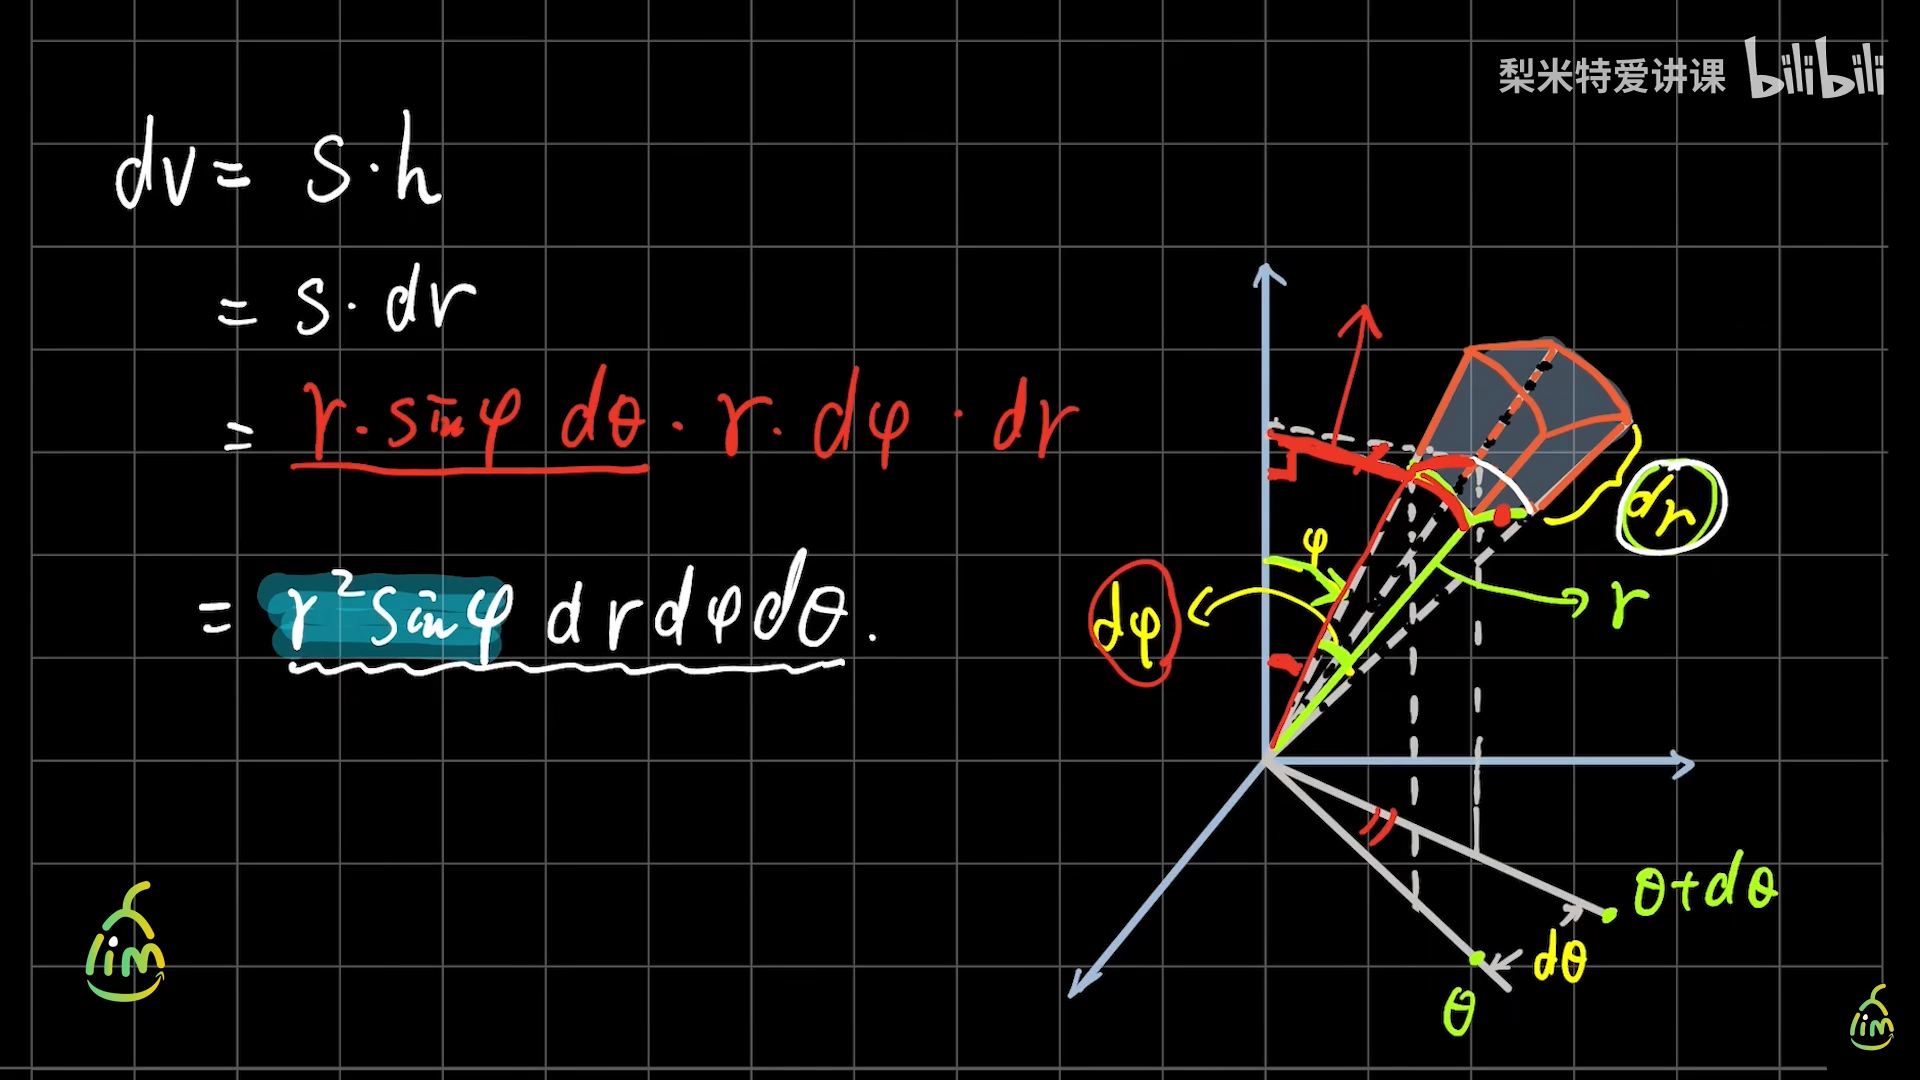 梨米特爱讲课 bilibili
dv = S·h
= S·dr
= r·sinφ dθ · r·dφ · dr
= r²sinφ drdφdθ.
dr
φ
dφ
r
θ+dθ
dθ
θ
lim
lim